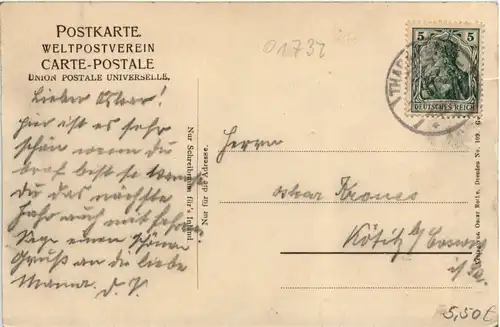 POSTKARTE.
WELTPOSTVEREIN
CARTE-POSTALE
UNION POSTALE UNIVERSELLE.
01732
5 5
DEUTSCHES REICH
THAR
Lieber Oskar!
hier ist es sehr
schön wenn du
brav bist so
du das nächste
Jahr auch mitfahren
sage einen schönen
Gruß an die liebe
Mama. d. P.
Nur Schreibraum für's Inland.
Nur für die Adresse.
Herrn
Oskar Krones
Kötitz b/ Coswig
i/Sa.
Oscar Roth, Dresden No. 109.
5,50€